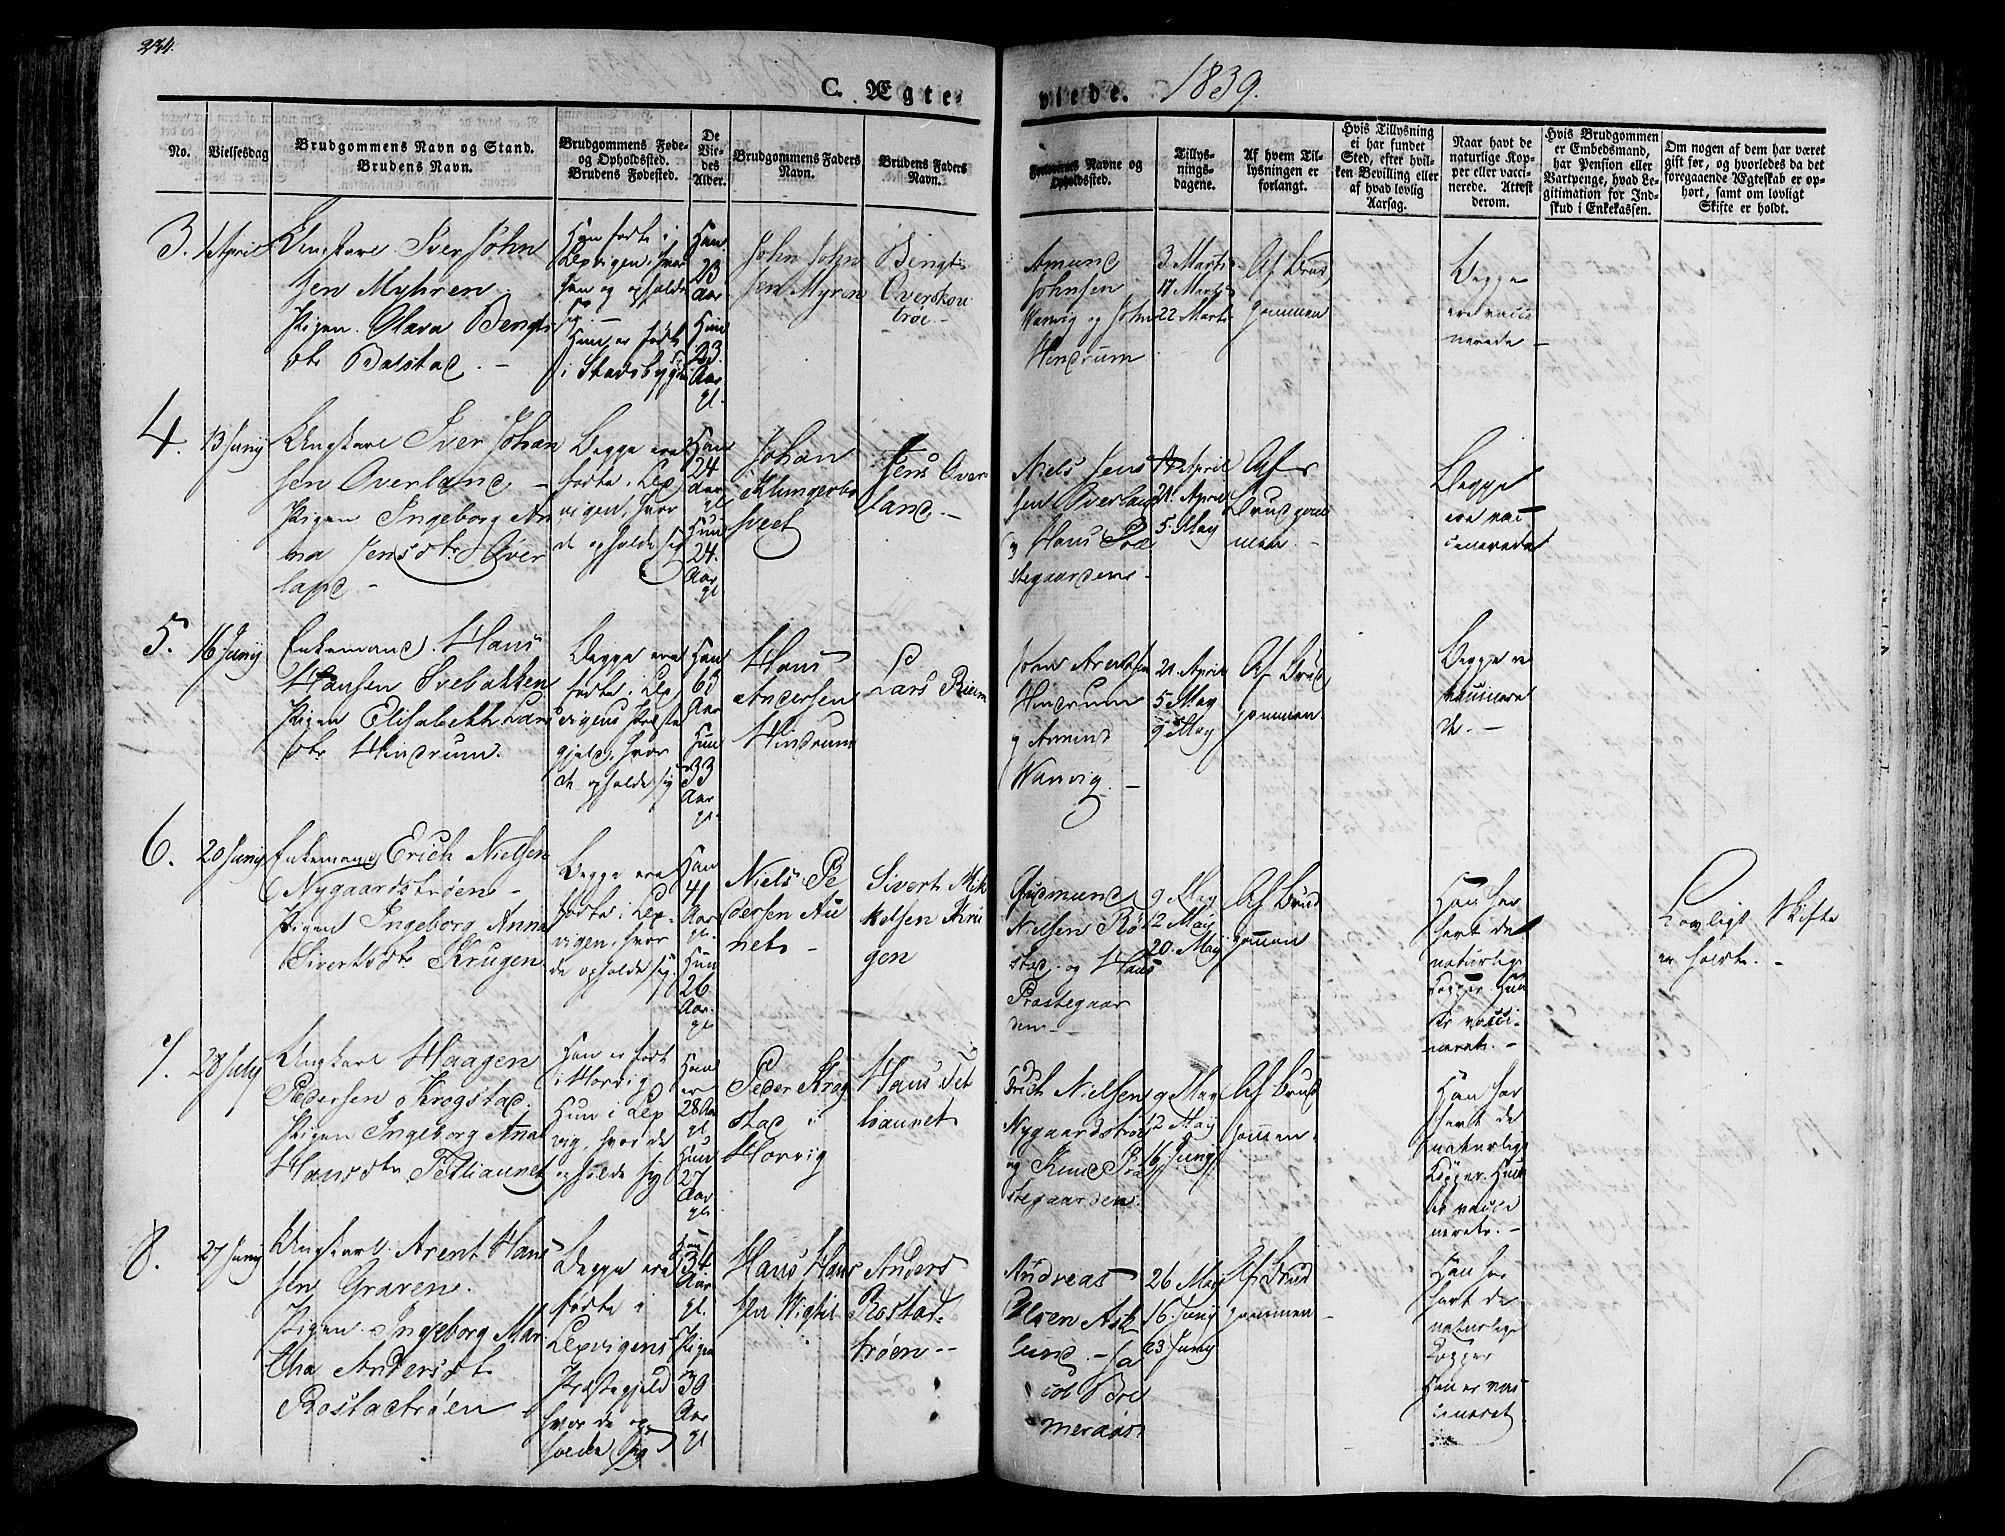 234.
C. Ægte-
viede. 1839.
No.
Vielsesdag
Brudgommens Navn og Stand.
Brudens Navn.
Brudgommens Føde-
og Opholdssted.
Brudens Fødested.
De
Vie-
des
Alder.
Brudgommens Faders
Navn.
Brudens Faders
Navn.
Forlovernes Navne og
Opholdssted.
Tillys-
nings-
dagene.
Af hvem Til-
lysningen er
forlangt.
Hvis Tillysning
ei har fundet
Sted, efter hvil-
ken Bevilling eller
af hvad lovlig
Aarsag.
Naar havt de
naturlige Kop-
per eller vacci-
nerede. Attest
derom.
Hvis Brudgommen
er Embedsmand,
har Pension eller
Vartpenge, hvad Le-
gitimation for Ind-
skud i Enkekassen.
Om nogen af dem har været
gift før, og hvorledes da det
foregaaende Ægteskab er op-
hørt, samt om lovligt
Skifte er holdt.
3.
1 April
Ungkarl Iver John
sen Myhren
Pigen Mara Bengts
dtr Balstad. -
Han født i
Lexvigen, hvor
han og opholder
sig. -
Hun er født
i Stadsbygden
Han
23
Aar
Hun
23
Aar
gl.
John John
sen Myren
Bengt
Overskou
trøe. -
Amund
Johnsen
Wanvig og John
Hindrum
3 Marti
17 Marti
22 Marti
Af Brud
gommen
Begge
ere vacci
nerede -
4.
13 Juny
Ungkarl Iver Johan
sen Overland -
Pigen Ingeborg An
na Jensdtr Over
land -
Begge ere
fødte i Lex
vigen, hvor
de opholde sig
Han
24
Aar
gl
Hun
24
Aar
gl
Johan
Klungerbo
sveet
Jens Over
land. -
Niels Jens
sen Overland
og Hans Præ
stegaarden -
21 April
5 May
Af
Brudgom
men -
Begge
ere vac
cinerede
5.
16 Juny
Enkemand Hans
Hansen Svebakken
Pigen Elisabeth Lars
dtr Hindrum.
Begge ere
fødte i Lex
vigens Præste
gjeld, hvor
de opholde sig
Han
63
Aar
Hun
33
Aar
gl.
Hans
Andersen
Hindrum
Lars Reiem
John Arentsen
Hindrum
og Amund
Wanvig. -
21 April
5 May
9 May
Af Brud
gommen
Begge er
vaccinere
de. -
6.
20 Juny
Enkemand Erich Nielsen
Nygaardstrøen -
Pigen Ingeborg Anna
Sivertsdtr Krugen
Begge ere
fødte i Lex-
vigen, hvor
de opholde sig.
Han
41
Aar
gl.
Hun
26
Aar
gl
Niels Pe
dersen Au
net -
Sivert Mik
kelsen Kru
gen
Gudmund
Nielsen Rø
stad og Hans
Præstegaar
den -
9 May
12 May
20 May
Af Brud
gommen
Han har
havt de
naturlige
Kopper. Hun
er vacci-
neret. -
Lovligt Skifte
er holdt. -
7.
28 July
Ungkarl Haagen
Pedersen Krogstad
Pigen Ingeborg Anna
Hansdtr Tetliaunet
Han er født
i Horvig
Hun i Lex
vig, hvor de
opholde sig
Han
er
28 Aar
gl
Hun
27
Aar
gl.
Peder Krog
stad i
Horvig
Hans Tet
liaunet
Erich Nielsen
Nygaardstrøe
og Knud Præ
stegaarden.
9 May
12 May
16 Juny
Af Brud
gommen
Han har
havt de
naturlige
Kopper. Hun
er vacci
neret. -
8.
27 Juny
Ungkarl Arent Hans
sen Graven.
Pigen Ingeborg Mar
tha Andersdtr
Rostadtrøen -
Begge ere
fødte i
Lexvigens
Præstegjeld
hvor de op-
holde sig
Han
34
Aar
gl.
Pigen
30
Aar
gl
Hans Hans
sen Wigtil
Anders
Rostad
trøen -
Andreas
Olsen Ask
lund - Ja
cob Bre
meraas
26 May
16 Juny
23 Juny
Af Brud
gommen
Han har
havt de
naturlige
Kopper
Hun er vac
cineret